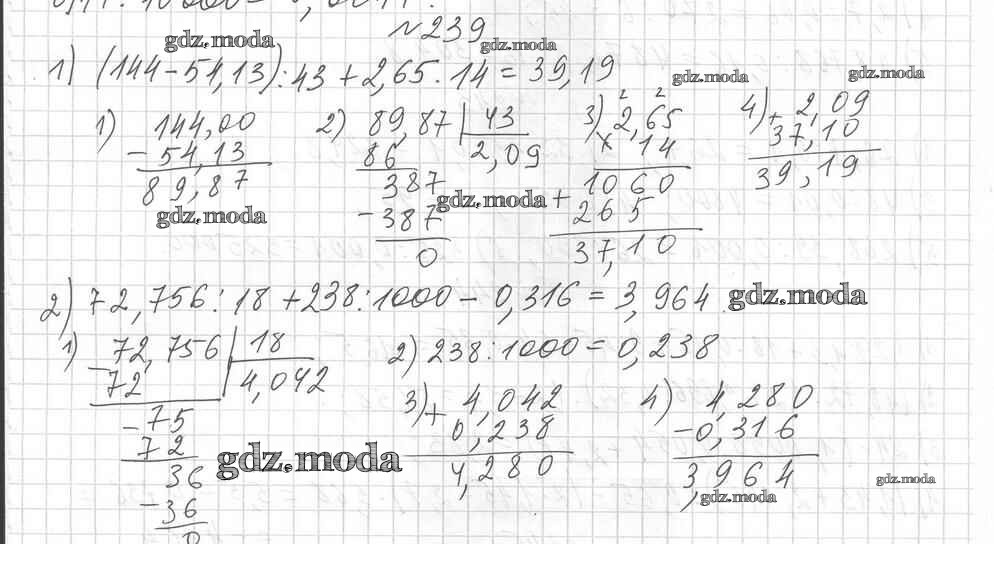 №239
1) (144-54,13):43+2,65·14=39,19
1) 144,00 2) 89,87 43 3) 2 2 2,65 4) 2,09
- 54,13 86 2,09 × 14 + 37,10
89,87 387 1060 39,19
-387 + 265
0 37,10
2) 72,756:18+238:1000-0,316=3,964
1) 72,756 18 2) 238:1000=0,238
- 72 4,042 3) + 4,042 4) 4,280
- 75 0,238 -0,316
72 4,280 3,964
36
-36
0
gdz.moda
gdz.moda
gdz.moda
gdz.moda
gdz.moda
gdz.moda
gdz.moda
gdz.moda
gdz.moda
gdz.moda